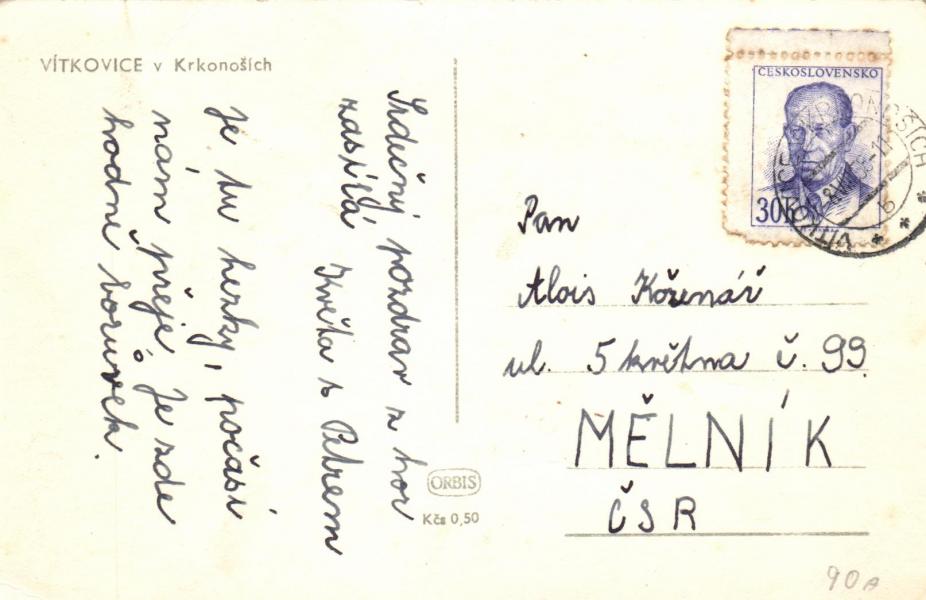 VÍTKOVICE v Krkonoších
Srdečný pozdrav z hor
zasílá Květa s Petrem
Je tu hezky, počasí
nám přeje. Je zde
hodně borůvek.
ČESKOSLOVENSKO
30
Pan
Alois Kořenář
ul. 5 května č. 99
MĚLNÍK
ČSR
ORBIS
Kčs 0,50
90A